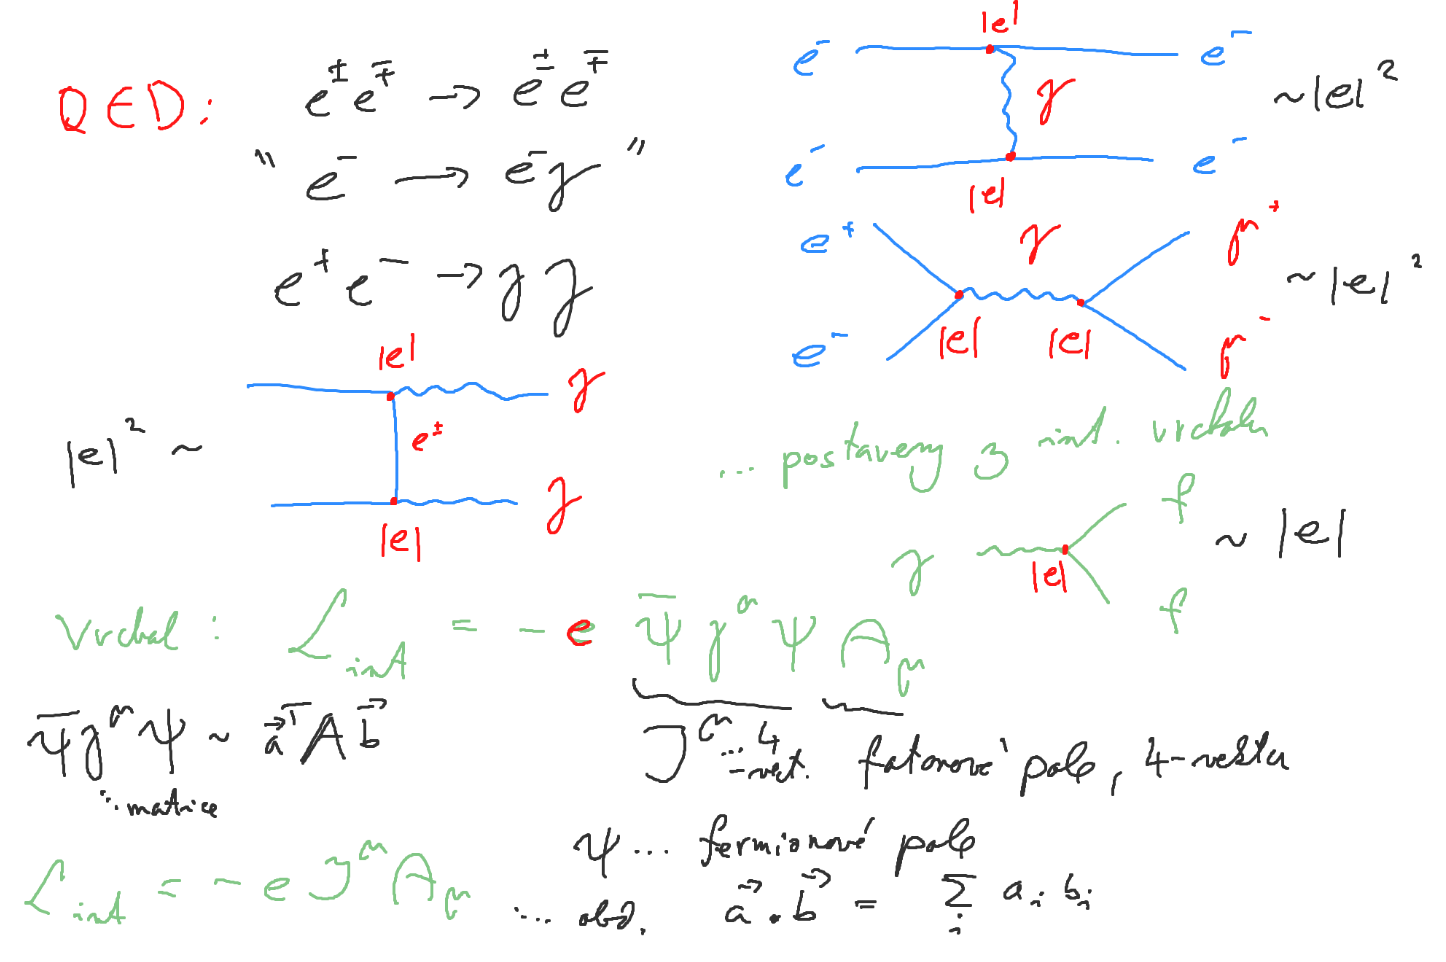 QED: e^± e^∓ → e^± e^∓
" e^- → e^- γ "
e^+ e^- → γ γ
|e|
e^- e^-
γ ~|e|^2
e^- e^-
|e|
e^+ γ μ^+
~|e|^2
e^- |e| |e| μ^-
|e|
γ
|e|^2 ~ e^±
γ
|e|
... postaveny z int. vrcholu
f
γ |e| ~ |e|
f
Vrchol : L_int = - e ψ̄ γ^μ ψ A_μ
ψ̄ γ^μ ψ ~ a⃗^T A b⃗
... matice
J^μ ... 4-vect. fotonové pole, 4-vektor
ψ ... fermionové pole
L_int = - e J^μ A_μ ... obd. a⃗ . b⃗ = Σ_i a_i b_i